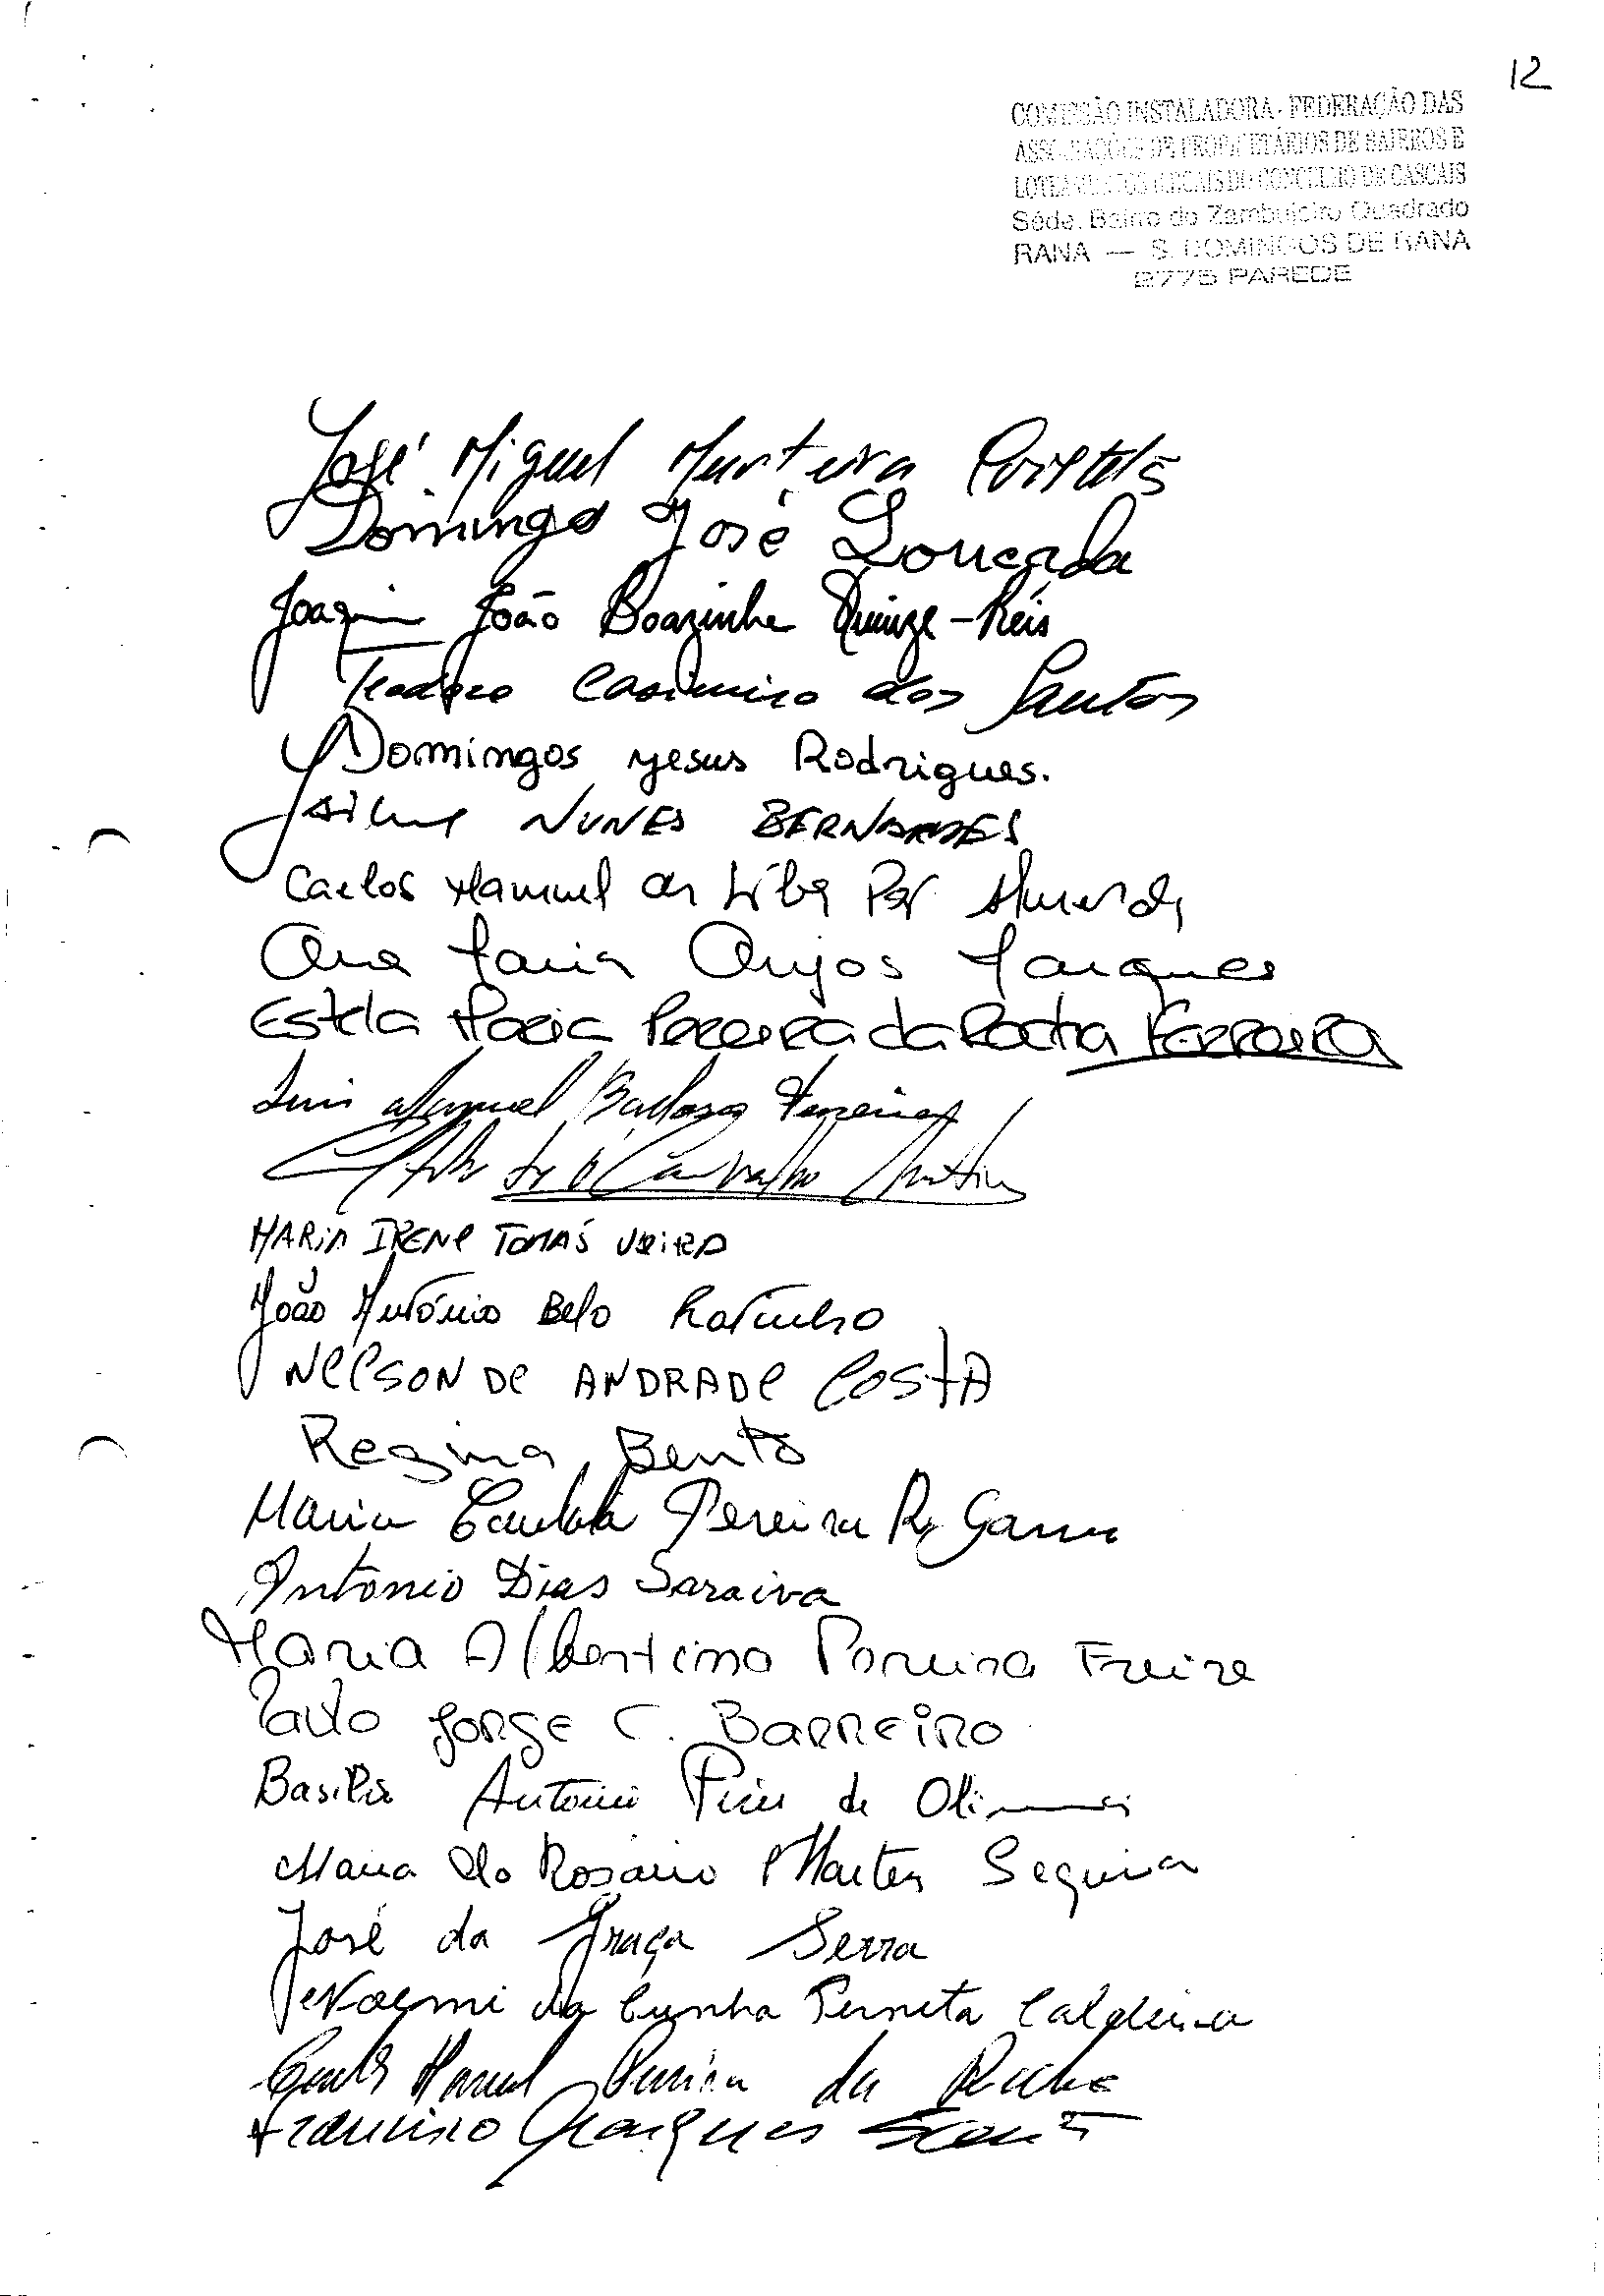 12
COMISSÃO INSTALADORA - FEDERAÇÃO DAS
ASSOCIAÇÕES DE PROPRIETÁRIOS DE BAIRROS E
LOTEAMENTOS ILEGAIS DO CONCELHO DE CASCAIS
Séde. Bairro do Zambujeiro Quadrado
RANA — S. DOMINGOS DE RANA
2775 PAREDE
José Miguel Murteira
Domingo José
Joaquim João Boazinha Quinze-Réis
Casimiro dos Santos
Domingos Jesus Rodrigues.
Jaime NUNES BERNARDES
Carlos Manuel da Silva
Ana Maria Anjos Marques
Estela Maria Pereira da Rocha Ferreira
Luis Manuel Barbosa Ferreira
Carvalho
MARIA IRENE TOMÁS VIEIRA
João António Belo Ratinho
NELSON DE ANDRADE COSTA
Regina Bento
Maria Candida Pereira R. Gama
António Dias Saraiva
Maria Albertina Pereira Freire
Paulo JORGE C. BARREIRO
Basílio António Pires de Oliveira
Maria do Rosário Martins Sequeira
José da Graça Serra
Noemi da Cunha Perneta Caldeira
Manuel Pereira da Rocha
Francisco Marques